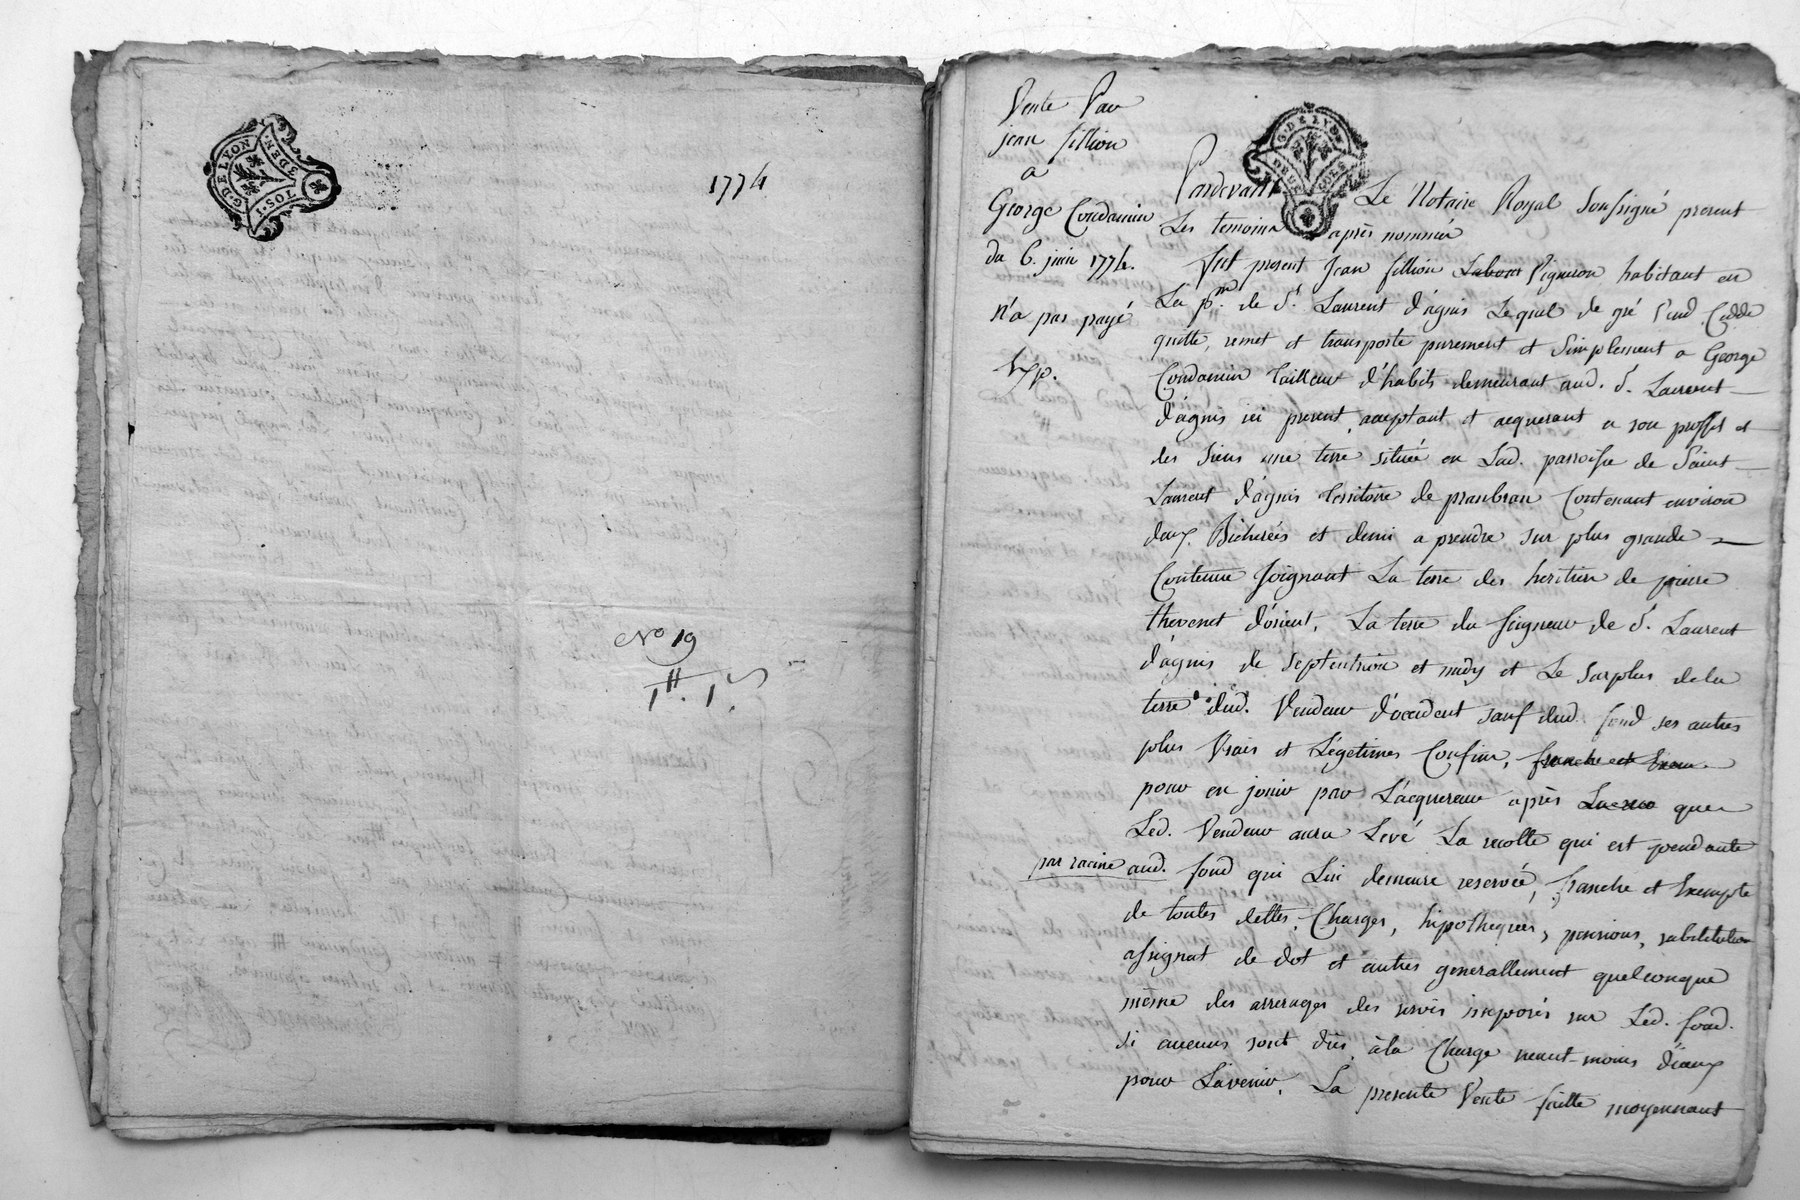 G. DE LYON
TOS. 1
DEN.
1774
No 19
1ᵗᵗ. 1ˢ
Vente Par
jean fillion
a
George Condamin
du 6. juin 1774.
n'a pas payé
Exp.
G. DE LYON
DEUX SOLS
Pardevant Le Notaire Royal Soussigné present
Les temoins après nommés
fut present Jean fillion Labour Vigneron habitant en
La pᵐ. de Sᵗ. Laurent d'agnis Lequel de gré Vend Cedde
quitte, remet et transporte purement et simplement a George
Condamin tailleur d'habits demeurant aud. Sᵗ. Laurent
d'agnis ici present, aceptant et aequerant a son proffit et
des Siens une terre située en Lad. parroisse de Saint
Laurent d'agnis territoire de pranbran Contenant environ
deux Bicherées et demi a prendre sur plus grande
Contenue joignant La terre des heritiers de pierre
thevenet d'orient, La terre du seigneur de Sᵗ. Laurent
d'agnis de septentrion et midy et Le surplus de la
terre dud. Vendeur d'occident sauf dud. fond ses autres
plus Vrais et Légetimes Confins, franche et Exem
pour en jouir par L'acquereur après que
Led. Vendeur aura Levé La recolte qui est pendante
par racine aud. fond qui Lui demeure reservée, franche et Exempte
de toutes dettes, Charges, hipotheques, pensions, substitution
assignat de dot et autres generallement quelconque
même des arrerages des servis imposés sur Led. fond.
si aucuns sont dûs, à la Charge neant-moins d'iceux
pour L'avenir, La presente Vente faitte moyennant